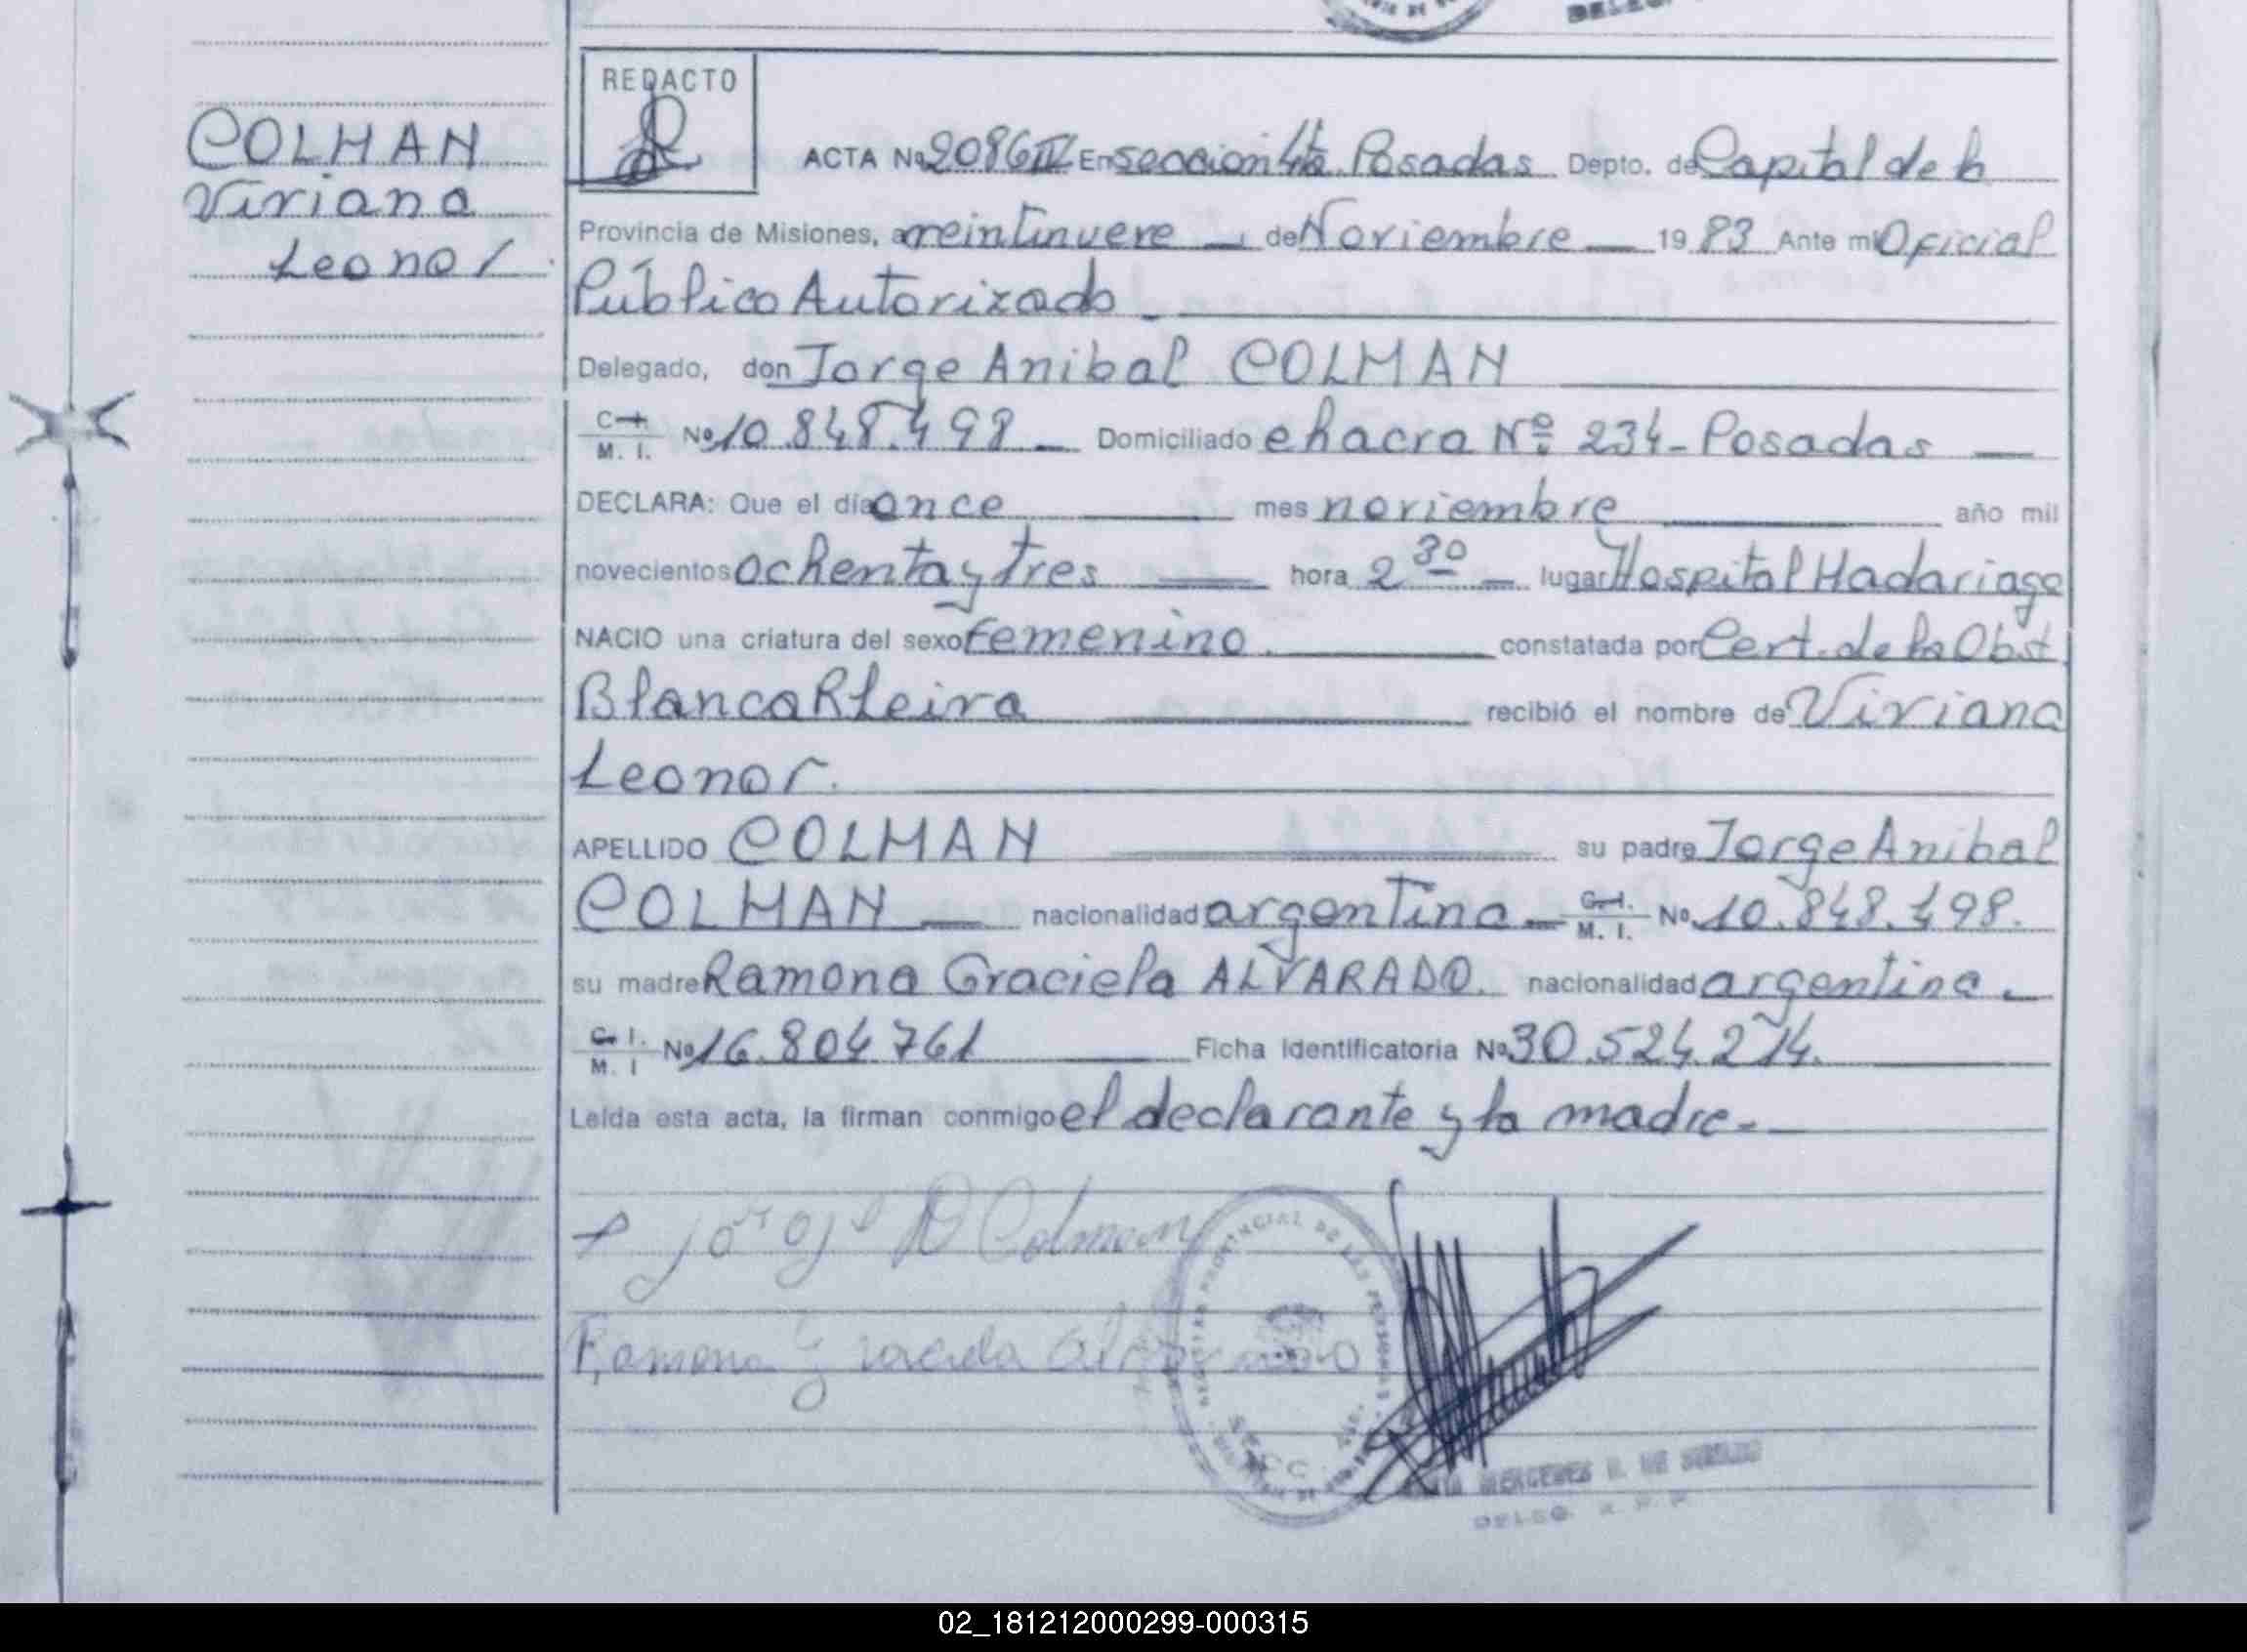 COLMAN
Viviana
Leonor
REDACTO
ACTA No 2086 IV En sección 4ta. Posadas Depto. de Capital de la
Provincia de Misiones, a veintinueve de Noviembre 19 83 Ante mi Oficial
Público Autorizado
Delegado, don Jorge Anibal COLMAN
C. I. M. I. No 10.848.498 Domiciliado chacra Nº 234 - Posadas
DECLARA: Que el día once mes noviembre año mil
novecientos ochenta y tres hora 2 30 lugar Hospital Madariaga
NACIO una criatura del sexo femenino. constatada por Cert. de la Obst.
Blanca recibió el nombre de Viviana
Leonor.
APELLIDO COLMAN su padre Jorge Anibal
COLMAN nacionalidad argentina C. I. M. I. No. 10.848.498.
su madre Ramona Graciela ALVARADO. nacionalidad argentina
C. I. M. I No 16.804.761 Ficha Identificatoria No 30.524.214.
Leída esta acta, la firman conmigo el declarante y la madre.
Colman
Ramona
REGISTRO PROVINCIAL DE LAS PERSONAS
MERCEDES
DELEG. R. P. P.
02_181212000299-000315